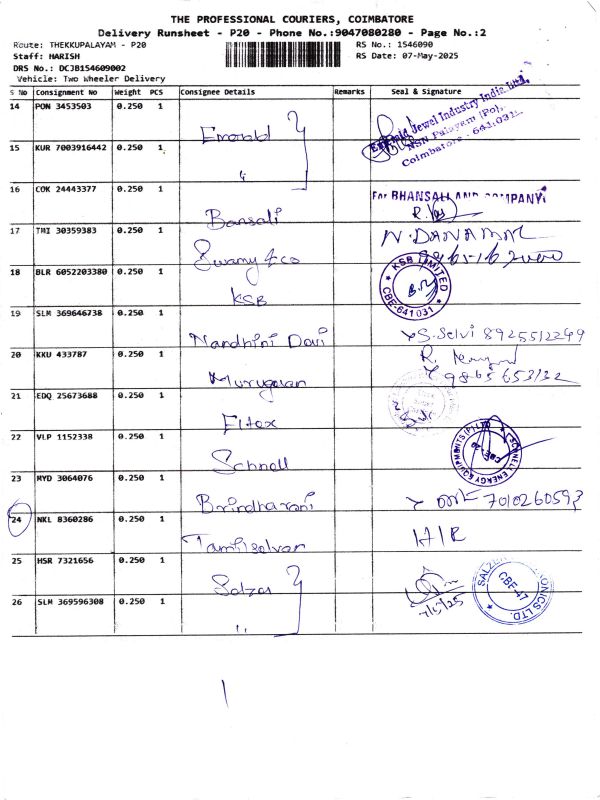 THE PROFESSIONAL COURIERS, COIMBATORE
Delivery Runsheet - P20 - Phone No.:9047080280 - Page No.:2
Route: THEKKUPALAYAM - P20
RS No.: 1546090
Staff: HARISH
RS Date: 07-May-2025
DRS No.: DCJB154609002
Vehicle: Two Wheeler Delivery
S No Consignment No Weight PCS Consignee Details Remarks Seal & Signature
14 PON 3453503 0.250 1 Emerald
Emerald Jewel Industry India Ltd.,
NSN Palayam (Po),
Coimbatore - 641 031.
15 KUR 7003916442 0.250 1 "
16 COK 24443377 0.250 1 Bansali For BHANSALI AND COMPANY
17 TMI 30359383 0.250 1 Swamy & co N. DANAPAL
18 BLR 6052203380 0.250 1 KSB KSB LIMITED CBE-641 031
19 SLM 369646738 0.250 1 Nandhini Devi S. Selvi 8925512299
20 KKU 433787 0.250 1 Murugavan R. 9865653132
21 EDQ 25673688 0.250 1 Eltex
22 VLP 1152338 0.250 1 Schnell SCHNELL ENERGY EQUIPMENTS (P) LTD
23 MYD 3064076 0.250 1 Brindharani 7010260593
24 NKL 8360286 0.250 1 Tamilselvan H/R
25 HSR 7321656 0.250 1 Salzer
7/5/25 CBE-47 LTD.
26 SLM 369596308 0.250 1 "